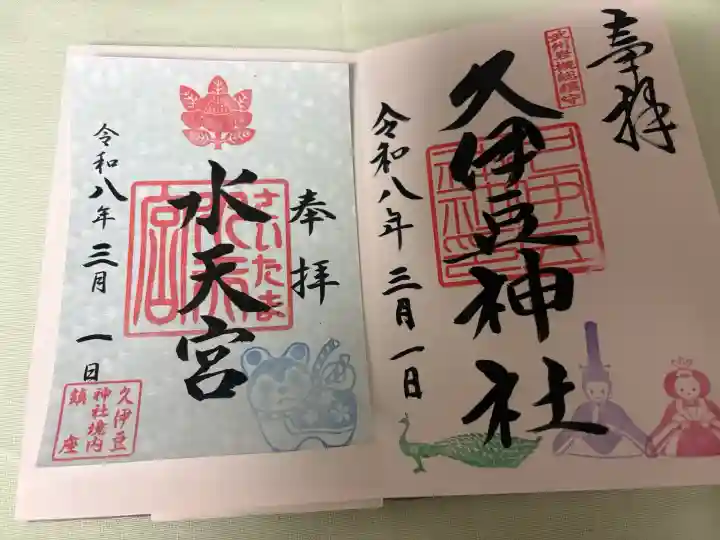 奉拝
武州岩槻総鎮守
久伊豆神社
令和八年三月一日
奉拝
さいたま
水天宮
令和八年三月一日
久伊豆
神社境内
鎮座